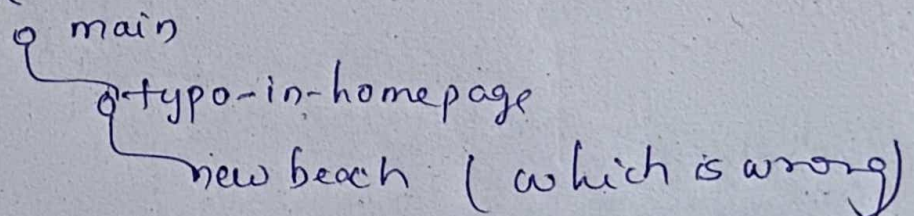 main
typo-in-homepage
new beach (which is wrong)